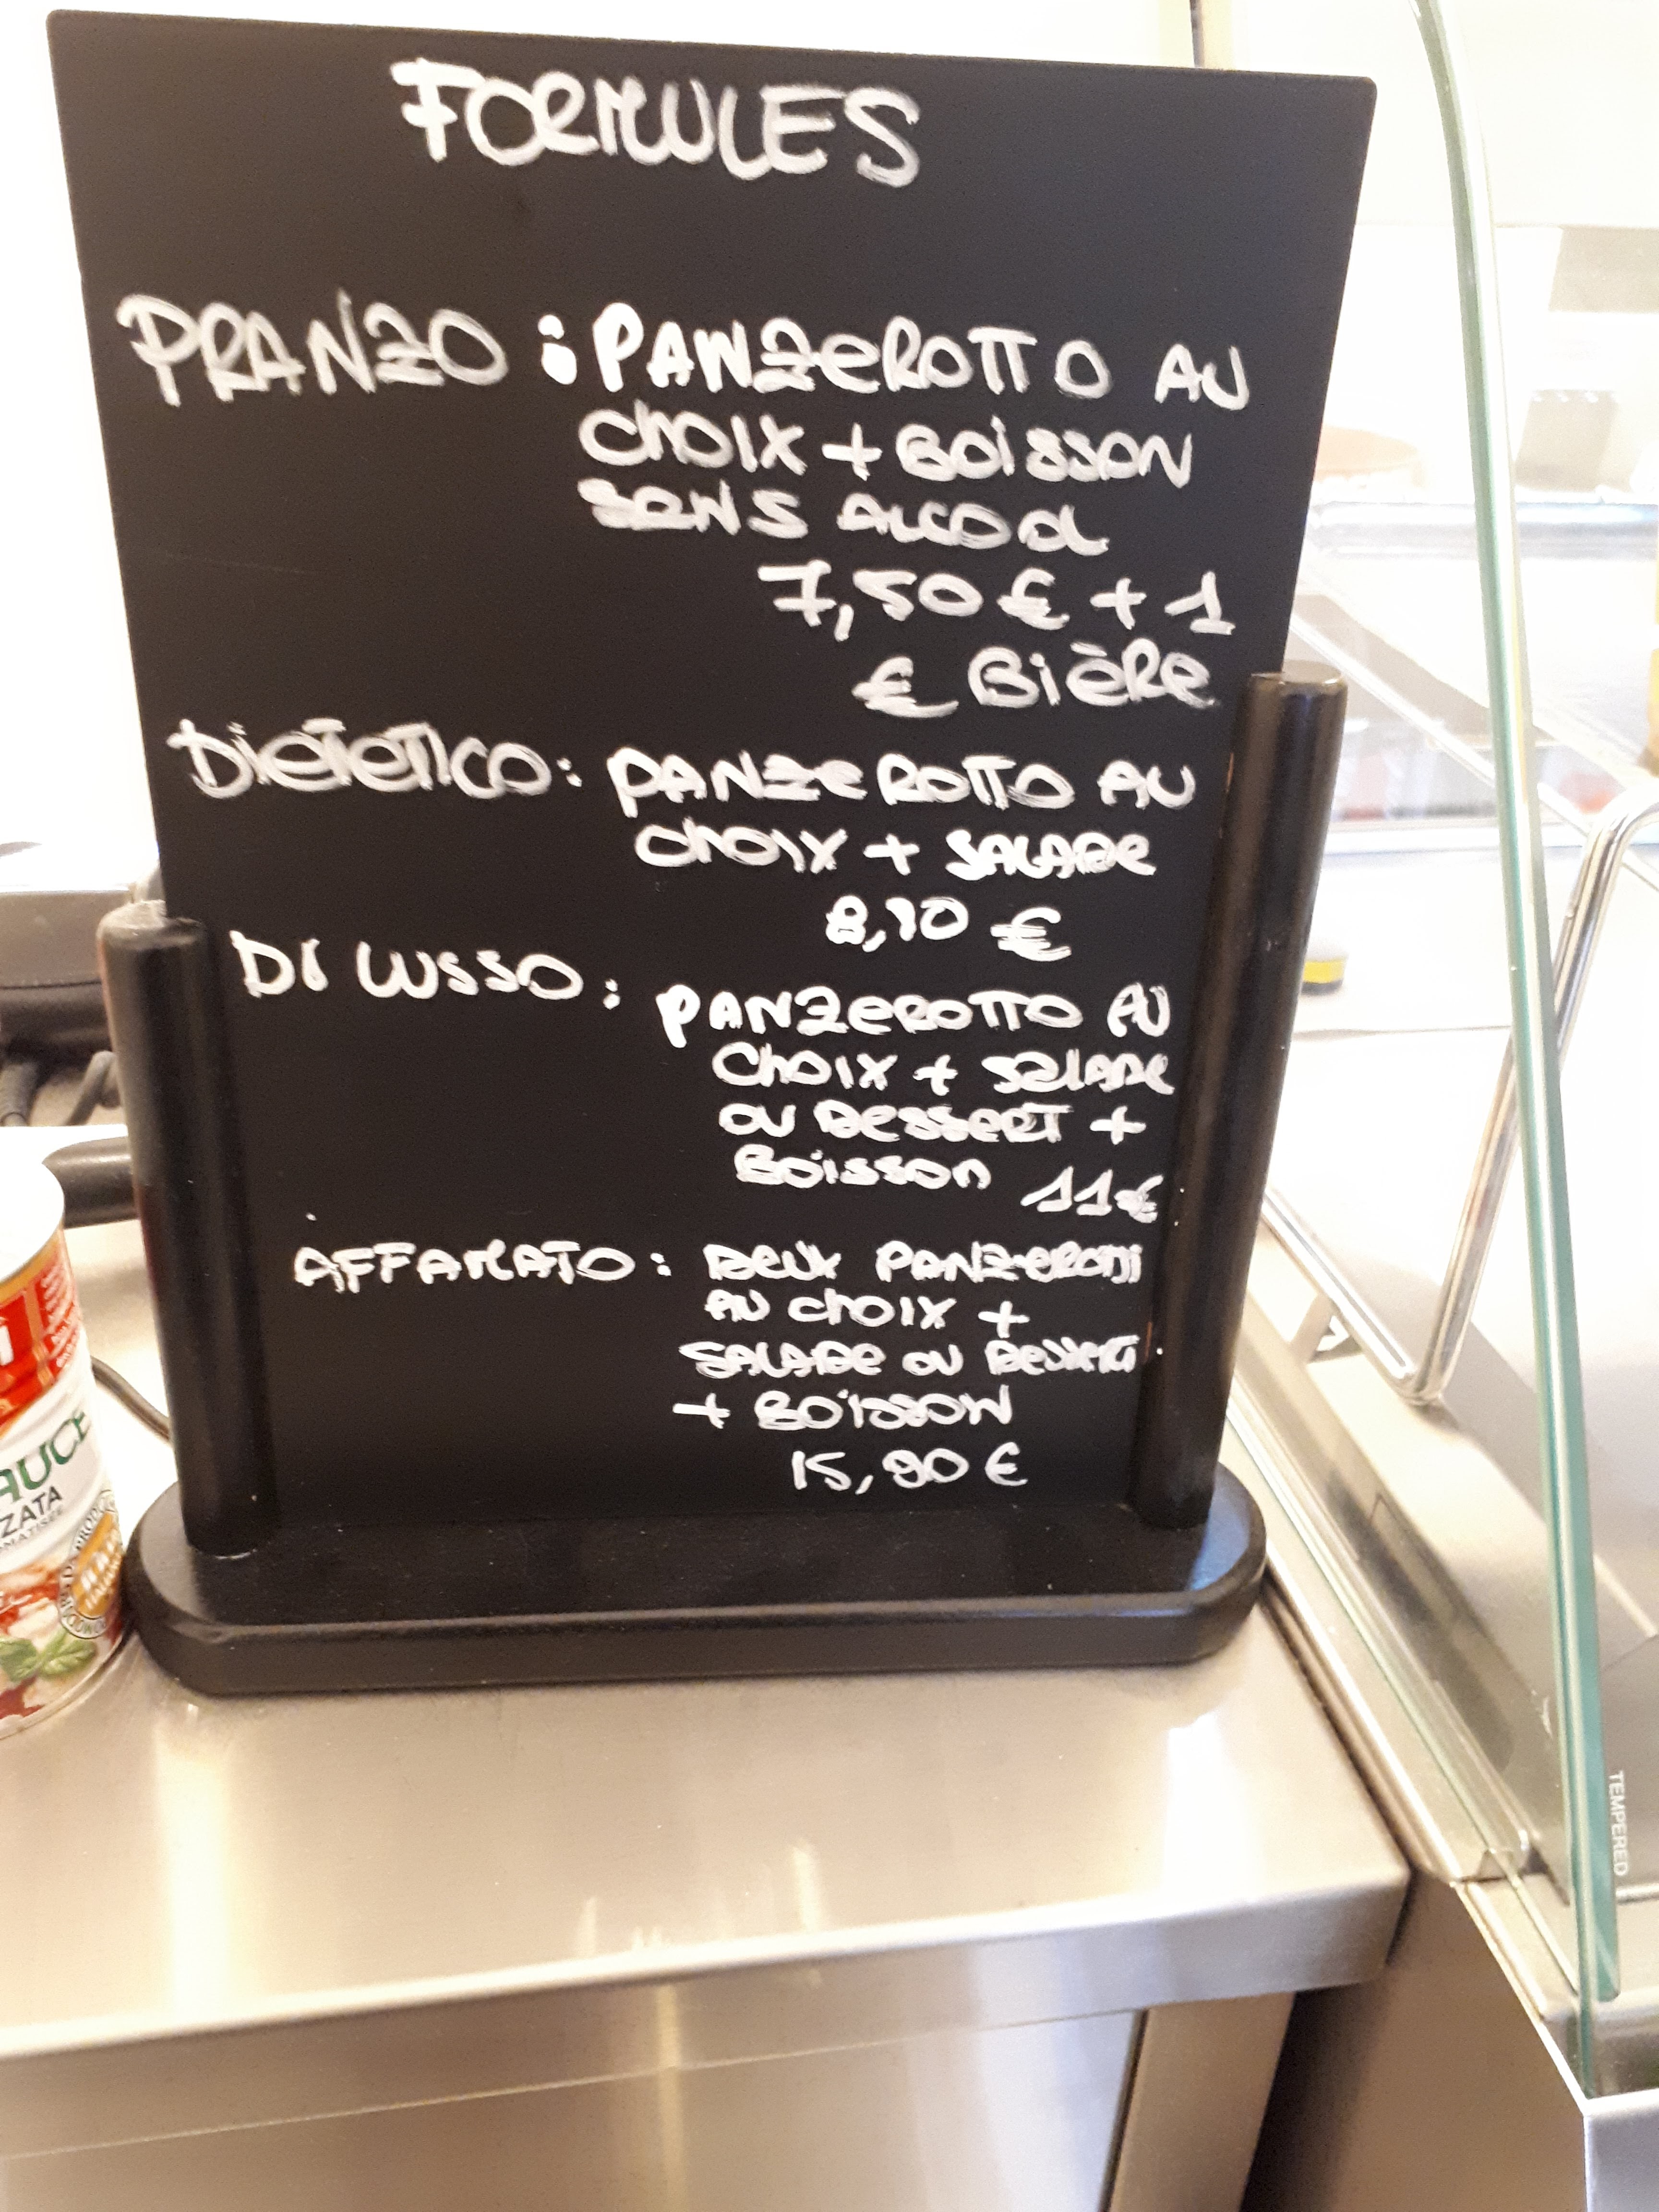 FORMULES
PRANZO : PANZEROTTO AU
CHOIX + BOISSON
SANS ALCOOL
7,50 € + 1
€ BIÈRE
DIETETICO : PANZEROTTO AU
CHOIX + SALADE
8,90 €
DI LUSSO : PANZEROTTO AU
CHOIX + SALADE
OU DESSERT +
BOISSON 11€
AFFAMATO : DEUX PANZEROTTI
AU CHOIX +
SALADE OU DESSERT
+ BOISSON
15,90 €
AUCE
ZATA
TEMPERED